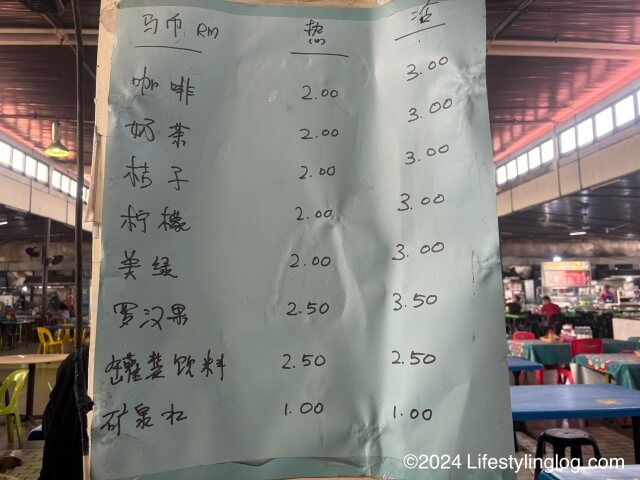 马币 RM 热 冷
咖啡 2.00 3.00
奶茶 2.00 3.00
桔子 2.00 3.00
柠檬 2.00 3.00
美绿 2.00 3.00
罗汉果 2.50 3.50
罐装饮料 2.50 2.50
矿泉水 1.00 1.00
©2024 Lifestylinglog.com